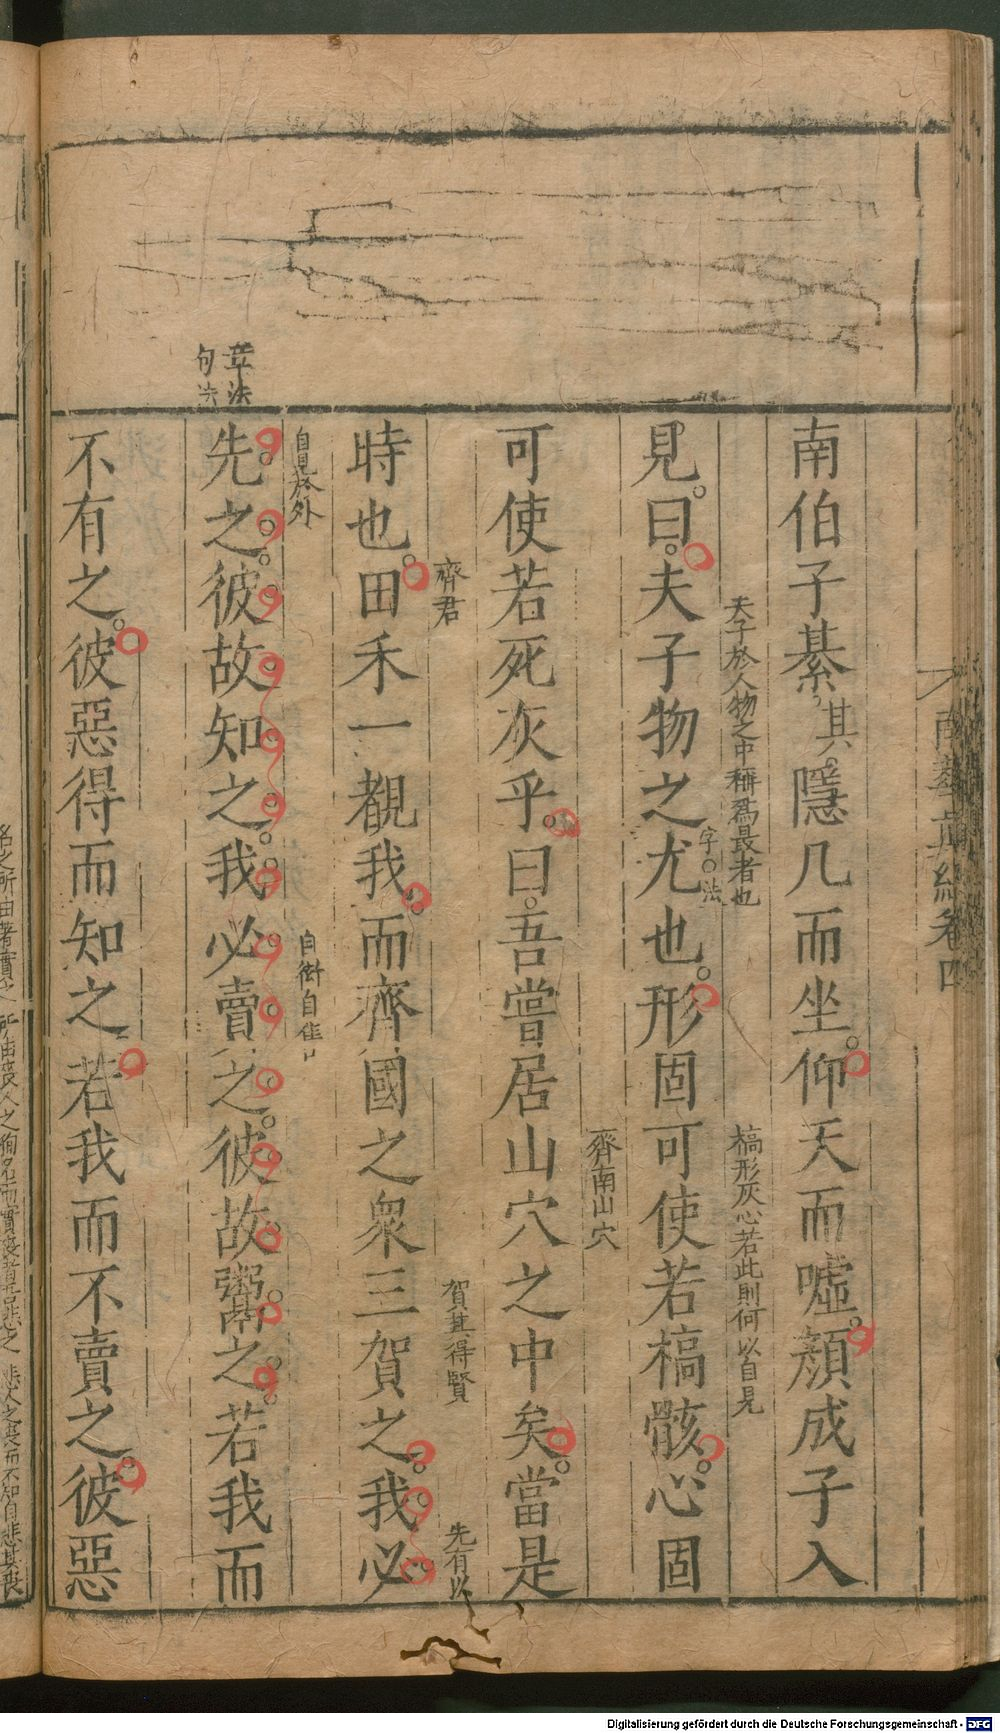 南華真經卷四
南伯子綦其隱几而坐仰天而噓顏成子入
夫子於人物之中稱爲最者也
槁形灰心若此則何以自見
見曰夫子物之尤也形固可使若槁骸心固
字法
齊南山穴
可使若死灰乎曰吾嘗居山穴之中矣當是
齊君
賀其得賢
先有以
時也田禾一覩我而齊國之衆三賀之我必
自見於外
自衒自
章法
句法
先之彼故知之我必賣之彼故鬻之若我而
不有之彼惡得而知之若我而不賣之彼惡
Digitalisierung gefördert durch die Deutsche Forschungsgemeinschaft - DFG